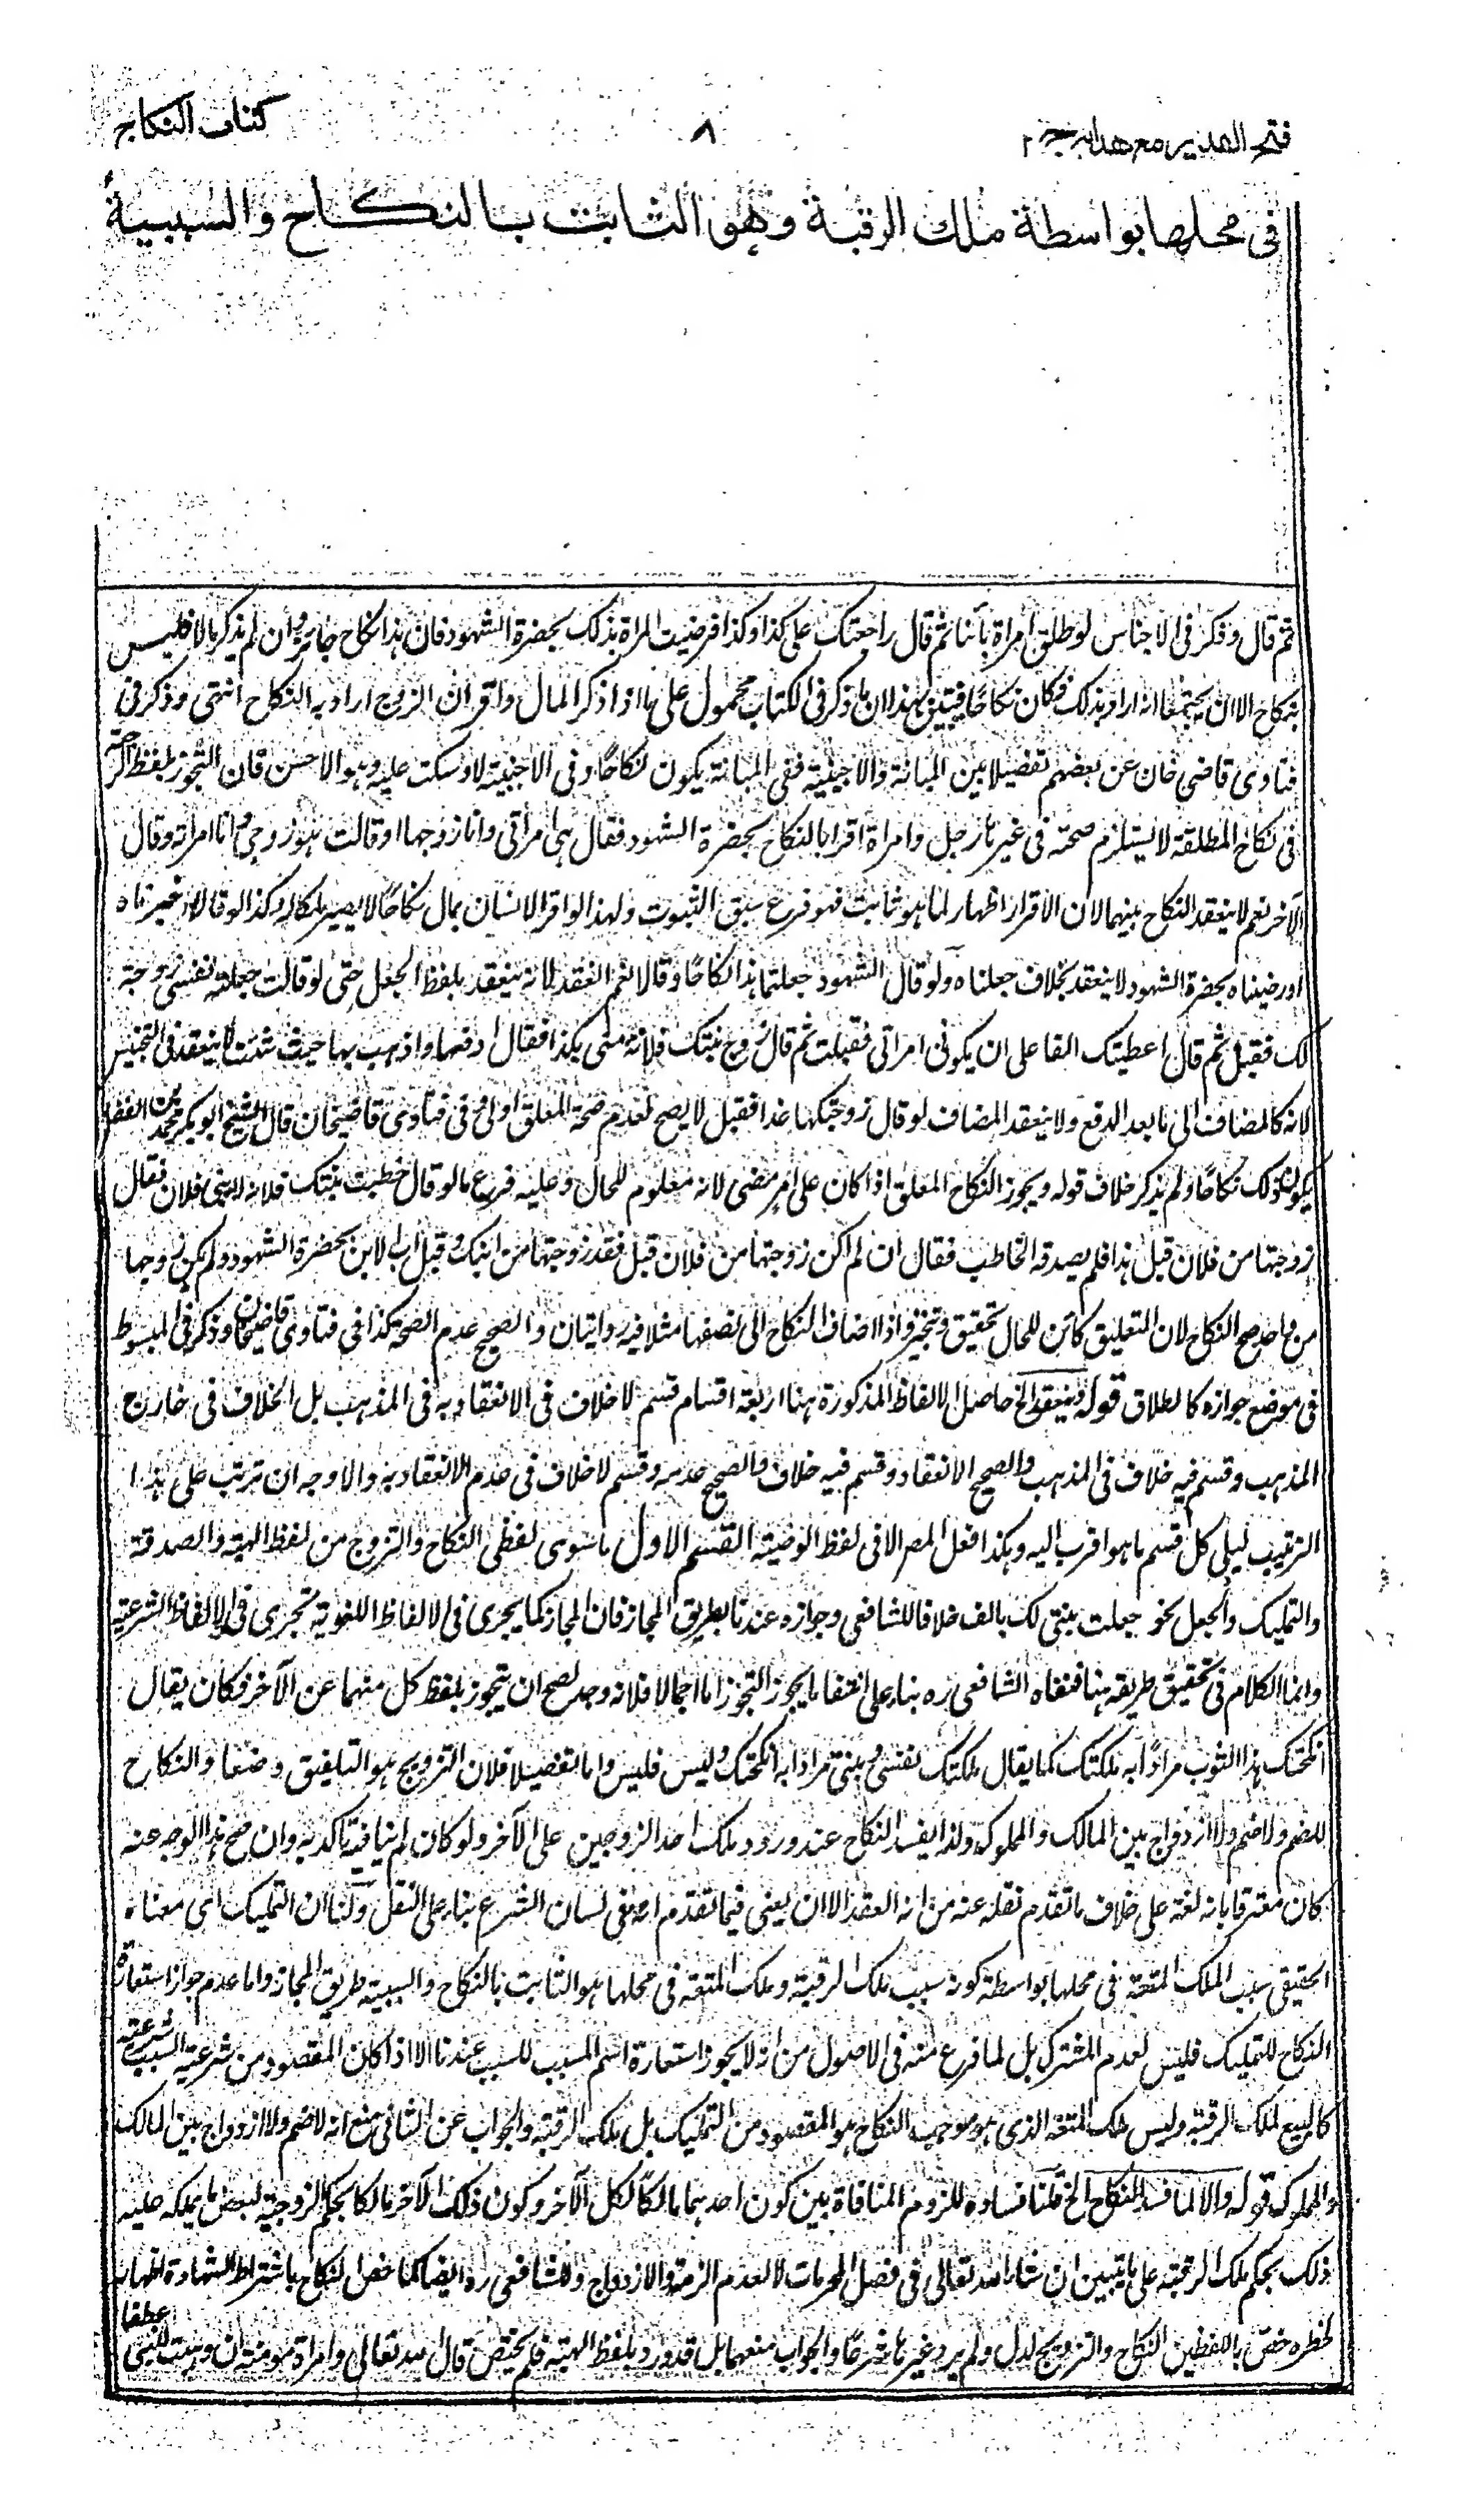 فتح القدير مع هدايه جـ ٢
٨
كتاب النكاح
في محلها بواسطة ملك الرقبة وهو الثابت بالنكاح والسببية
ثم قال وذكر في الاجناس لو طلق امرأة بائنا ثم قال راجعتك على كذا وكذا فرضيت المراة بذلك بحضرة الشهود فان هذا نكاح جائز وان لم يذكر مالا فليس
بنكاح الا ان يجتمعا انه اراد بذلك فكان نكاحًا فيتبين بهذا ان ما ذكر في الكتاب محمول على ما اذا ذكر المال واقر ان الزوج اراد به النكاح انتهى وذكر في
فتاوى قاضي خان عن بعضهم تفصيلا بين المبانة والاجنبية ففي المبانة يكون نكاحًا وفي الاجنبية لا وسكت عليه وهو الاحسن فان التجوز بلفظ الرجعة
في نكاح المطلقة لا يستلزم صحته في غيرها رجل وامراة اقرا بالنكاح بحضرة الشهود فقال هي امراتي وانا زوجها او قالت هو زوجي وانا امراته وقال
الآخر نعم لا ينعقد النكاح بينهما لان الاقرار اظهار لما هو ثابت فهو فرع سبق الثبوت ولهذا لو اقر الانسان بمال نكاحًا لا يصير ملكا له وكذا لو قالا اجزناه
او رضيناه بحضرة الشهود لا ينعقد بخلاف جعلناه ولو قال الشهود جعلتما هذا نكاحًا وقالا نعم انعقد لانه ينعقد بلفظ الجعل حتى لو قالت جعلت نفسي زوجة
لك فقبل ثم قال اعطيتك الفا على ان يكوني امراتي فقبلت ثم قال زوج بنتك فلانة مني بكذا فقال ادفعها واذهب بها حيث شئت لا ينعقد في التجنيس
لانه كالمضاف الى ما بعد الدفع ولا ينعقد المضاف لو قال زوجتكها غدا فقبل لا يصح لعدم صحة المعلق اولى وفي فتاوى قاضيخان قال الشيخ ابو بكر محمد بن الفضل
يكون ذلك نكاحًا ولم يذكر خلاف قوله ويجوز النكاح المعلق اذا كان على امر مضى لانه معلوم للحال وعليه فرع ما لو قال خطبت بنتك فلانة لابني فلان فقال
زوجتها من فلان قبل هذا فلم يصدقه الخاطب فقال ان لم اكن زوجتها من فلان قبل فقد زوجتها من ابنك وقبل اب الابن بحضرة الشهود ولم يكن زوجها
من احد صح النكاح لان التعليق كائن للحال تحقيق وتنجيز واذا اضاف النكاح الى نصفها مثلا فيه روايتان والصحيح عدم الصحة كذا في فتاوى قاضيخان وذكر في المبسوط
في موضع جوازه كالطلاق قوله وينعقد الخ حاصل الالفاظ المذكورة هنا اربعة اقسام قسم لا خلاف في الانعقاد به في المذهب بل الخلاف في خارج
المذهب وقسم فيه خلاف في المذهب والصحيح الانعقاد وقسم فيه خلاف والصحيح عدمه وقسم لا خلاف في عدم الانعقاد به والاوجه ان ترتب على هذا
الترتيب ليلي كل قسم ما هو اقرب اليه وهكذا فعل المصر الا في لفظ الوصية القسم الاول ما سوى لفظي النكاح والتزوج من لفظ الهبة والصدقة
والتمليك والجعل نحو جعلت بنتي لك بالف خلافا للشافعي وجوازه عندنا بطريق المجاز فان المجاز كما يجري في الالفاظ اللغوية تجرى في الالفاظ الشرعية
وانما الكلام في تحقيق طريقه هنا فنفاه الشافعي ره بناء على انتفا ما يجوز التجوز اما اجمالا فلانه وجد لصح ان يتجوز بلفظ كل منهما عن الآخر فكان يقال
انكحتك هذا الثوب مرادًا به ملكتك كما يقال ملكتك نفسي وبنتي مرادا به انكحتك وليس فليس واما تفصيلا فلان التزويج هو التلفيق وضعا والنكاح
للضم ولا ضم ولا ازدواج بين المالك والمملوكة ولذا يفسد النكاح عند ورود ملك احد الزوجين على الآخر ولو كان لم ينافيه تاكد به وان صح هذا الوجه عنه
كان معترفا بانه لغة على خلاف ما تقدم نقله عنه من انه العقد الا ان يعني فيما تقدم انه في لسان الشرع بناء على النقل ولنا ان التمليك اي معناه
الحقيقي سبب لملك المتعة في محلها بواسطة كونه سبب ملك الرقبة وملك المتعة في محلها هو الثابت بالنكاح والسببية طريق المجاز واما عدم جواز استعارة
النكاح للتمليك فليس لعدم المشترك بل لما فرغ منه في الاصول من انه لا يجوز استعارة اسم المسبب للسبب عندنا الا اذا كان المقصود من شرعية السبب شرعيته
كالبيع لملك الرقبة وليس ملك المتعة الذي هو موجب النكاح هو المقصود من التمليك بل ملك الرقبة والجواب عن الثاني منع انه لا ضم ولا ازدواج بين المالك
والمملوك قوله والا لما فسد النكاح الخ قلنا فساده للزوم المنافاة بين كون احدهما مالكًا لكل الآخر وكون ذلك الآخر مالكا بحكم الزوجية لبعض ما يملكه عليه
ذلك بحكم ملك الرقبة على ما يتبين ان شاء الله تعالى في فصل المحرمات لا لعدم الزمة والازدواج وللشافعي ره ايضا لما خص النكاح باشتراط الشهادة اظهارا
لخطره خص باللفظين النكاح والتزويج لدل ولم يرد غيرها شرعًا والجواب منعهما بل قد ورد بلفظ الهبة فلم يختص قال الله تعالى وامراة مومنة ان وهبت للنبي عطفا